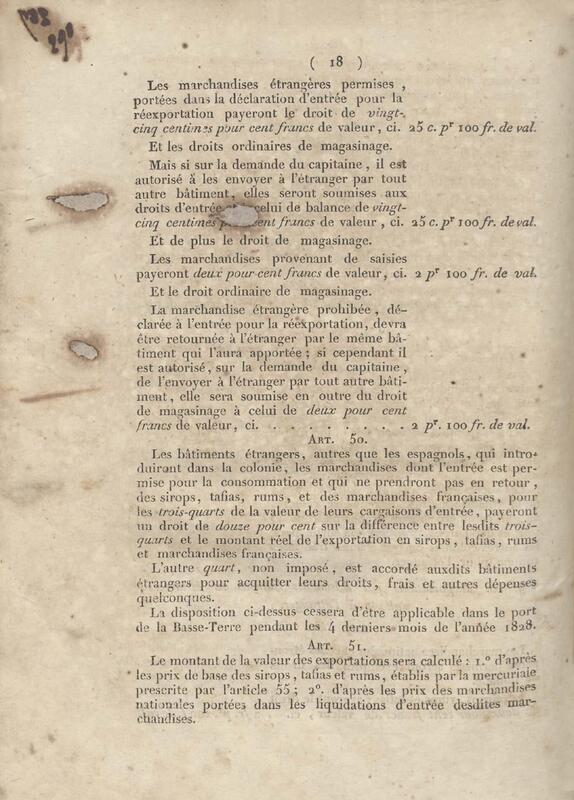 ( 18 )
Les marchandises étrangères permises ,
portées dans la déclaration d'entrée pour la
réexportation payeront le droit de vingt-
cinq centimes pour cent francs de valeur, ci. 25 c. pr 100 fr. de val.
Et les droits ordinaires de magasinage.
Mais si sur la demande du capitaine , il est
autorisé à les envoyer à l'étranger par tout
autre bâtiment, elles seront soumises aux
droits d'entrée celui de balance de vingt-
cinq centimes cent francs de valeur , ci. 25 c. pr 100 fr. de val.
Et de plus le droit de magasinage.
Les marchandises provenant de saisies
payeront deux pour cent francs de valeur, ci. 2 pr 100 fr. de val.
Et le droit ordinaire de magasinage.
La marchandise étrangère prohibée , dé-
clarée à l'entrée pour la réexportation, devra
être retournée à l'étranger par le même bâ-
timent qui l'aura apportée ; si cependant il
est autorisé , sur la demande du capitaine ,
de l'envoyer à l'étranger par tout autre bâti-
ment , elle sera soumise en outre du droit
de magasinage à celui de deux pour cent
francs de valeur, ci. . . . . . . . . 2 pr. 100 fr. de val.
ART. 50.
Les bâtiments étrangers, autres que les espagnols, qui intro-
duiront dans la colonie, les marchandises dont l'entrée est per-
mise pour la consommation et qui ne prendront pas en retour ,
des sirops, tafias, rums , et des marchandises françaises, pour
les trois-quarts de la valeur de leurs cargaisons d'entrée, payeront
un droit de douze pour cent sur la différence entre lesdits trois-
quarts et le montant réel de l'exportation en sirops , tafias , rums
et marchandises françaises.
L'autre quart, non imposé , est accordé auxdits bâtiments
étrangers pour acquitter leurs droits, frais et autres dépenses
quelconques.
La disposition ci-dessus cessera d'être applicable dans le port
de la Basse-Terre pendant les 4 derniers mois de l'année 1828.
ART. 51.
Le montant de la valeur des exportations sera calculé : 1.° d'après
les prix de base des sirops , tafias et rums , établis par la mercuriale
prescrite par l'article 55 ; 2°. d'après les prix des marchandises
nationales portées dans les liquidations d'entrée desdites mar-
chandises.